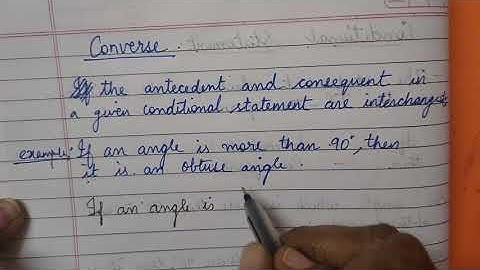 Converse.
If the antecedent and consequent in
a given conditional statement are interchanged,
example: If an angle is more than 90°, then
it is an obtuse angle.
If an angle is